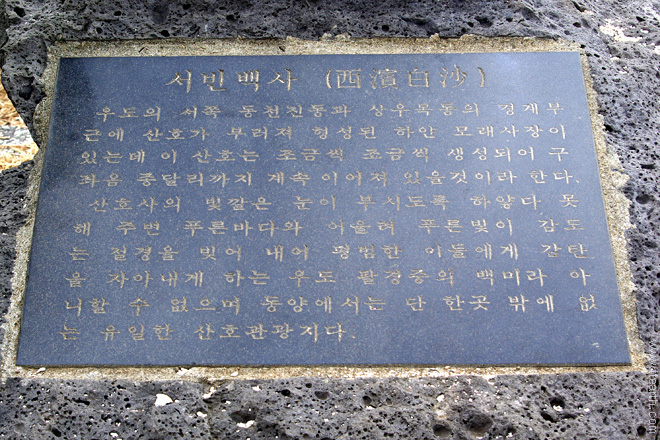 서빈백사 (西濱白沙)
우도의 서쪽 동천진동과 상우목동의 경계부
근에 산호가 부러져 형성된 하얀 모래사장이
있는데 이 산호는 조금씩 조금씩 생성되어 구
좌읍 종달리까지 계속 이어져 있을것이라 한다.
산호사의 빛깔은 눈이 부시도록 하얗다 못
해 주변 푸른바다와 어울려 푸른빛이 감도
는 절경을 빚어 내어 평범한 이들에게 감탄
을 자아내게 하는 우도 팔경중의 백미라 아
니할 수 없으며 동양에서는 단 한곳 밖에 없
는 유일한 산호관광지다.